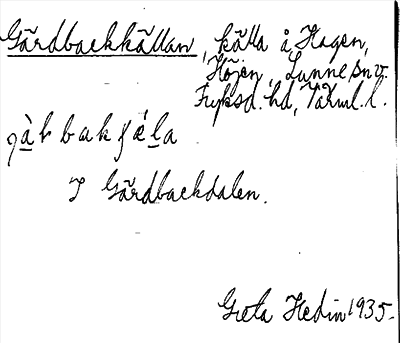 Gårdbackkällan, källa å Hagen,
Höjen, Lunne sn v.
Fryksd. hd, Värml. l.
I Gårdbackdalen.
Greta Hedin 1935.